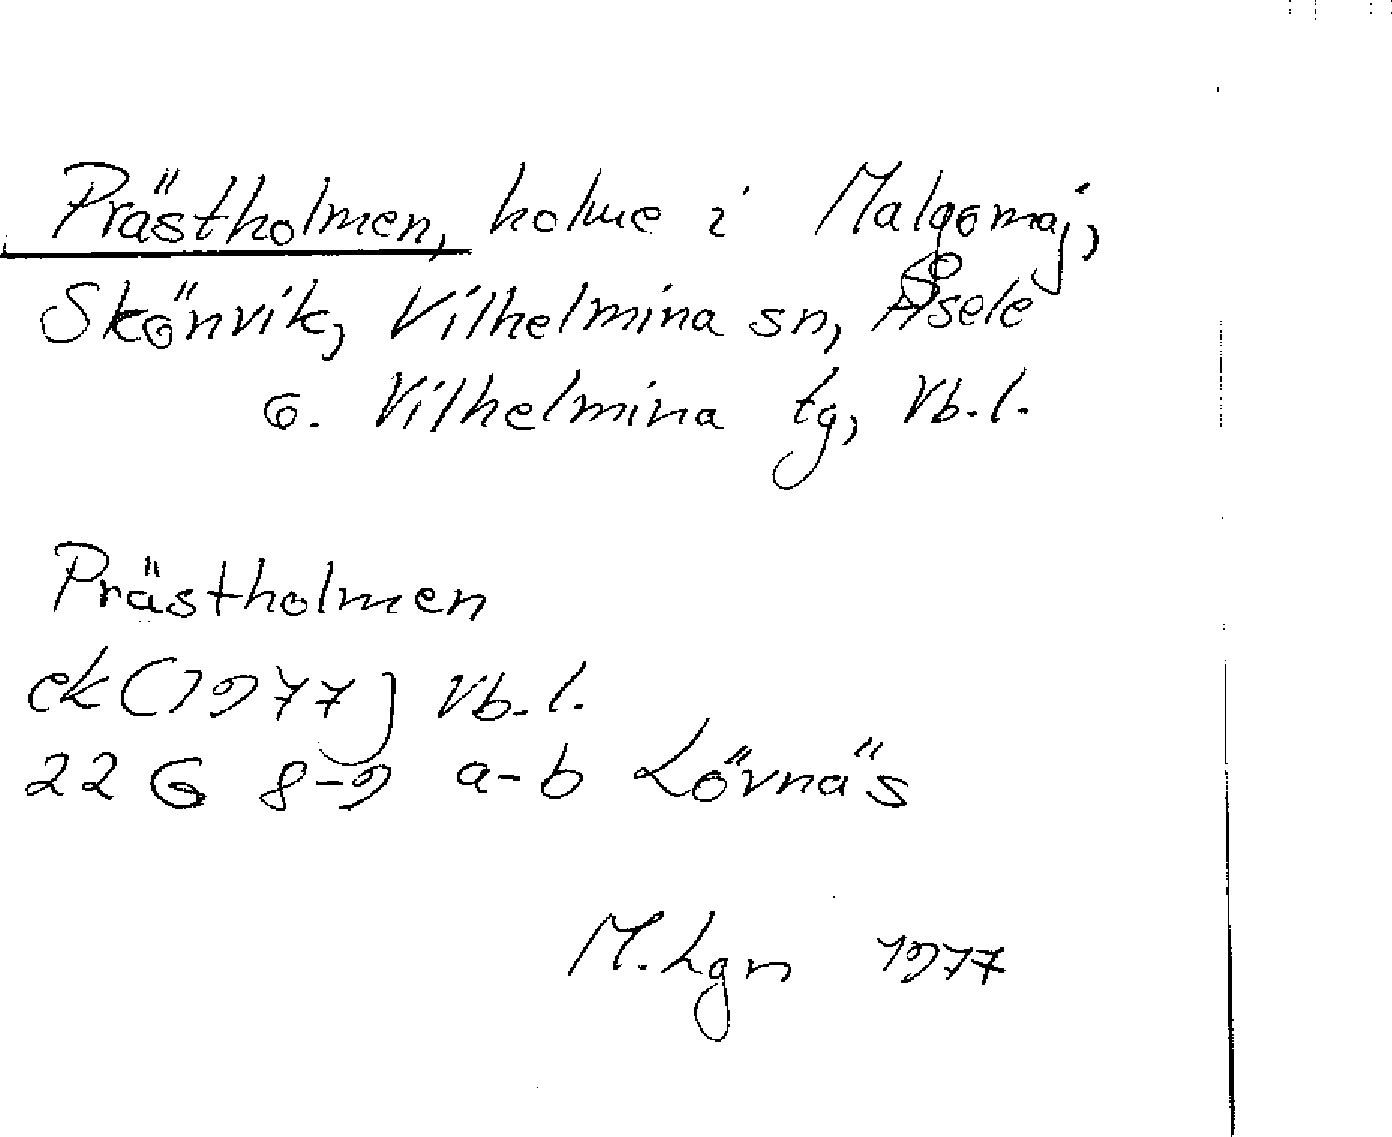 Prästholmen, holme i Malgomaj,
Skönvik, Vilhelmina sn, Åsele
o. Vilhelmina tg, Vb.l.
Prästholmen
ek (1977) Vb.l.
22 G 8-9 a-b Lövnäs
M. Lgn 1977